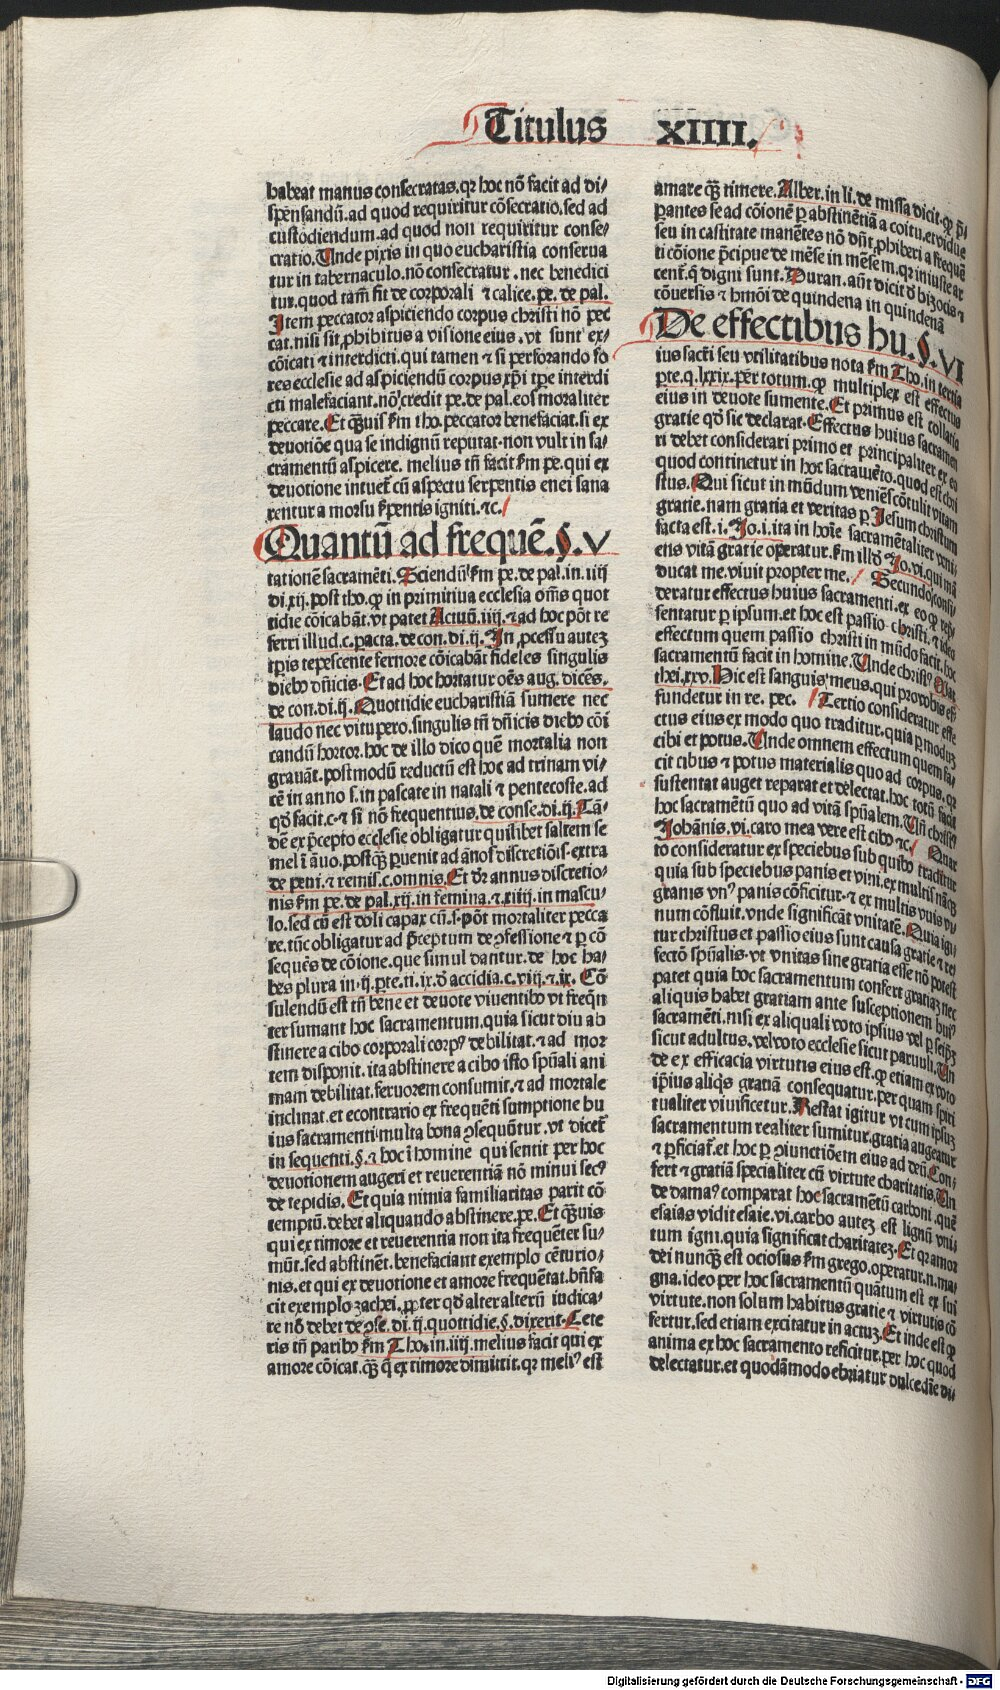 Titulus XIIII.
habeat manus consecratas. qꝛ hoc nō facit ad di⸗
spēnsandū. ad quod requiritur cōsecratio, sed ad
custodiendum. ad quod non requiritur conse⸗
cratio. Unde pixis in quo eucharistia conserua
tur in tabernaculo. nō consecratur. nec benedici
tur. quod tam̄ fit de corporali ⁊ calice. pe. de pal.
Item peccator aspiciendo corpus christi nō pec
cat. nisi sit ꝓhibitus a visione eius. vt sunt ex⸗
cōicati ⁊ interdicti. qui tamen ⁊ si perforando fo
res ecclesie ad aspiciendū corpus xp̄i tꝑe interdi
cti malefaciant. nō credit pe. de pal. eos moraliter
peccare. Et qūis ẜm tho. peccator benefaciat. si ex
deuotiōe qua se indignū reputat. non vult in sa⸗
cramentū aspicere. melius tn̄ facit ẜm pe. qui ex
deuotione intuet̄ cū aspectu serpentis enei sana
rentur a morsu ẜpentis igniti. ⁊c.
Quantū ad frequē. §. V
tationē sacramēti. Sciendū ẜm pe. de pal. in. iiij
di. xij. post tho. ꝙ in primitiua ecclesia om̄s quot
tidie cōicabāt. vt patet Actuū. iiij. ⁊ ad hoc pōt re
ferri illud. c. pacta. de con. di. ij. In ꝓcessu autez
tp̄is tepescente feruore cōicabāt fideles singulis
diebꝰ dn̄icis. Et ad hoc hortatur oēs aug. dicēs.
de con. di. ij. Quottidie eucharistiā sumere nec
laudo nec vitupero. singulis tn̄ dn̄icis diebꝰ cōi
candū hortor. hoc de illo dico quē mortalia non
grauāt. postmodū reductū est hoc ad trinam vi⸗
cē in anno s. in pascate in natali ⁊ pentecoste. ad
qd̄ facit. c. ⁊ si nō frequentius. de conse. di. ij. Tā⸗
dē ex p̄cepto ecclesie obligatur quilibet saltem se
mel ī āno. postq̄ꝫ puenit ad ānos discretiōis. extra
de peni. ⁊ remis. c. omnis. Et dr̄ annus discretio⸗
nis ẜm pe. de pal. xij. in femina. ⁊ xiiij. in mascu⸗
lo. sed cū est doli capax cū. s. pōt mortaliter pecca
re. tūc obligatur ad p̄ceptum de ꝯfessione ⁊ p cō
sequēs de cōione. que simul dantur. de hoc ha⸗
bes plura in. ij. pte. ti. ix. d̄ accidia. c. viij. ⁊ ix. Cō
sulendū est tn̄ bene et deuote viuentibꝰ vt freqn̄
ter sumant hoc sacramentum. quia sicut diu ab
stinere a cibo corporali corpꝰ debilitat. ⁊ ad mor
tem disponit. ita abstinere a cibo isto spūali ani
mam debilitat. feruorem consumit. ⁊ ad mortale
inclinat. et econtrario ex frequēti sumptione hu
ius sacramenti multa bona ꝯsequūtur. vt dicet̄
in sequenti. §. ⁊ hoc ī homine qui sentit per hoc
deuotionem augeri et reuerentiā nō minui secꝰ
de tepidis. Et quia nimia familiaritas parit cō
temptū. debet aliquando abstinere. pe. Et qūis
qui ex timore et reuerentia non ita frequēter su⸗
mūt. sed abstinēt. benefaciant exemplo cēturio⸗
nis. et qui ex deuotione et amore frequētat. bn̄fa
cit exemplo zachei. ꝓpter qd̄ alter alterū iudica⸗
re nō debet de ꝯse. di. ij. quottidie. §. dixerit. Cete
ris tn̄ paribꝰ ẜm Tho. in. iiij. melius facit qui ex
amore cōicat. qꝫ q̄ ex timore dimittit. qꝛ meliꝰ est
amare qꝫ timere. Alber. in li. de missa dicit. ꝙ p̄⸗
pantes se ad cōionē p abstinētiā a coitu. et vidue
seu in castitate manētes nō dn̄t ꝓhiberi a frequē
ti cōione p̄cipue de mēse in mēsem. qꝛ iniuste ar
cent̄. q̄ digni sunt. Duran. aūt dicit d̄ bizocis ⁊
cōuersis ⁊ hmōi de quindena in quindenā
De effectibus hu. §. VI
ius sacr̄i seu vtilitatibus nota ẜm Tho. in tertia
pte. q. lxxix. per totum. ꝙ multiplex est effectus
eius in deuote sumente. Et primus est collatio
gratie qd̄ sic declarat. Effectus huius sacramen
ti debet considerari primo et principaliter ex eo
quod continetur in hoc sacramēto. quod est chri
stus. Qui sicut in mūdum veniēs cōtulit vitam
gratie. nam gratia et veritas p Iesum christum
facta est. i. Io. i. ita in hoīe sacramētaliter veni⸗
ens vitā gratie operatur. ẜm illd̄ Io. vi. qui mā
ducat me. viuit propter me. Secundo consi⸗
deratur effectus huius sacramenti. ex eo ꝙ repre
sentatur p ipsum. et hoc est passio christi. ⁊ ideo
effectum quem passio christi in mūdo facit. hoc
sacramentū facit in homine. Unde christꝰ Mat
thei. xxv. Hic est sanguis meus. qui pro vobis ef⸗
fundetur in re. pec. Tertio consideratur effe
ctus eius ex modo quo traditur. quia p modum
cibi et potus. Unde omnem effectum quem fa⸗
cit cibus ⁊ potus materialis quo ad corpus. qꝛ
sustentat auget reparat et delectat. hoc totū facit
hoc sacramētū quo ad vitā spūalem. Un̄ christꝰ
Iohānis. vi. caro mea vere est cibꝰ ⁊c. Quar
to consideratur ex speciebus sub quibꝰ traditur
quia sub speciebus panis et vini. ex multis nāqꝫ
granis vnꝰ panis cōficitur. ⁊ ex multis vuis vi⸗
num cōfluit. vnde significāt vnitatē. Quia igi⸗
tur christus et passio eius sunt causa gratie ⁊ re⸗
fectō spūalis. vt vnitas sine gratia esse nō potest
patet quia hoc sacramentum confert gratiaꝫ nec
aliquis habet gratiam ante susceptionem huiꝰ
sacramēti. nisi ex aliquali voto ipsius vel p seipꝫ
sicut adultus. vel voto ecclesie sicut paruuli. Un
de ex efficacia virtutis eius est. ꝙ etiam ex voto
ipsius aliqs gratiā consequatur. per quam spiri
tualiter viuificetur. Restat igitur vt cum ipsuꝫ
sacramentum realiter sumitur. gratia augeatur
⁊ pficiat̄. et hoc p ꝯiunctiōem eius ad deū. Con⸗
fert ⁊ gratiā specialiter cū virtute charitatis. Un̄
de damaꝰ comparat hoc sacramētū carboni. quē
esaias vidit esaie. vi. carbo autez est lignū vni⸗
tum igni. quia significat charitatez. Et qꝛ amor
dei nunqꝫ est ociosus ẜm grego. operatur. n. ma⸗
gna. ideo per hoc sacramentū quātum est ex sui
virtute. non solum habitus gratie ⁊ virtutis cō
fertur. sed etiam excitatur in actuꝫ. Et inde est ꝙ
anima ex hoc sacramento reficitur. per hoc quod
delectatur. et quodāmodo ebriatur dulcedīe di⸗
Digitalisierung gefördert durch die Deutsche Forschungsgemeinschaft - DFG